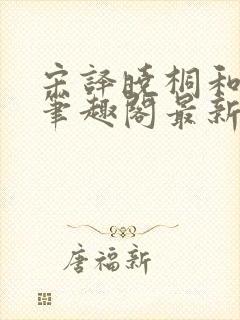 宋译晓桐和
笔趣阁最新
唐福新